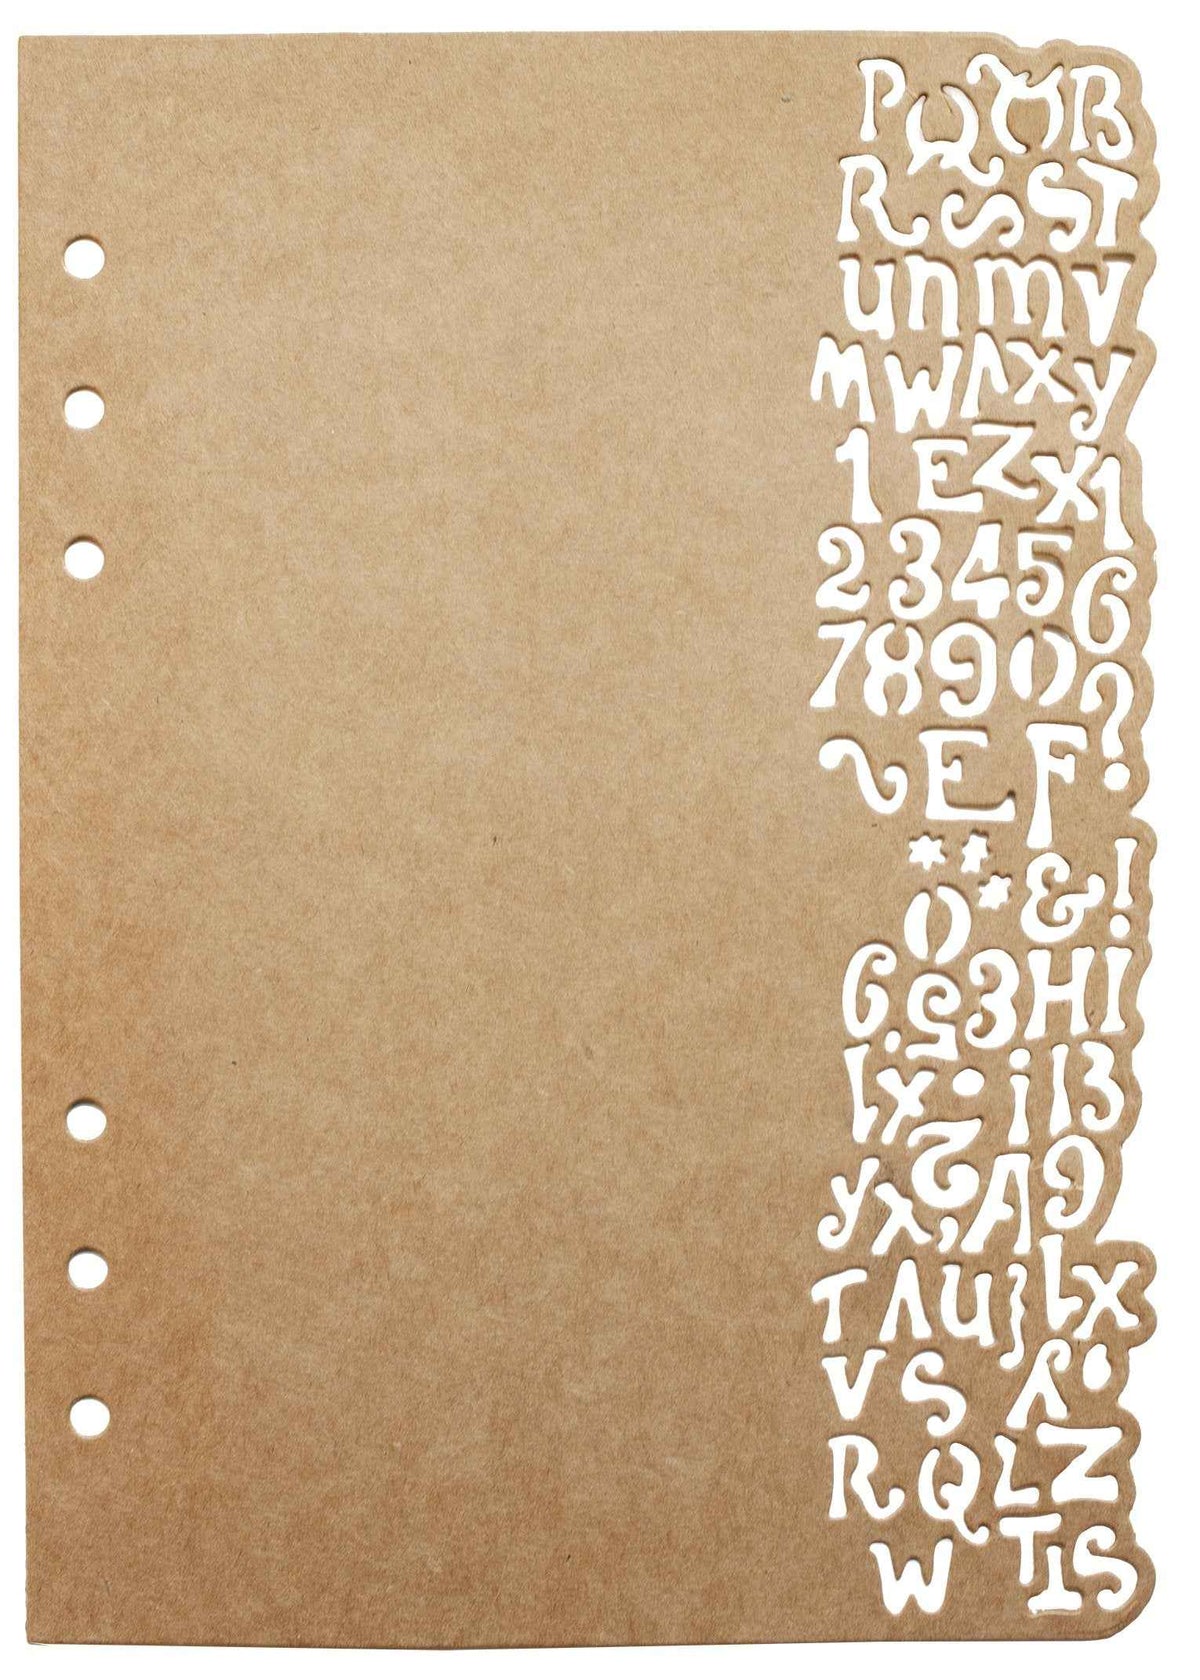 P Q M B
R S S T
u n m V
M W Λ X y
1 E Z X 1
2 3 4 5 6
7 8 9 0 ?
~ E F
* * * & !
0
6 5 3 H I
l x · i 1 3
y λ 2 , A 9
T Λ U } L X
V S
R Q L Z
W T I S